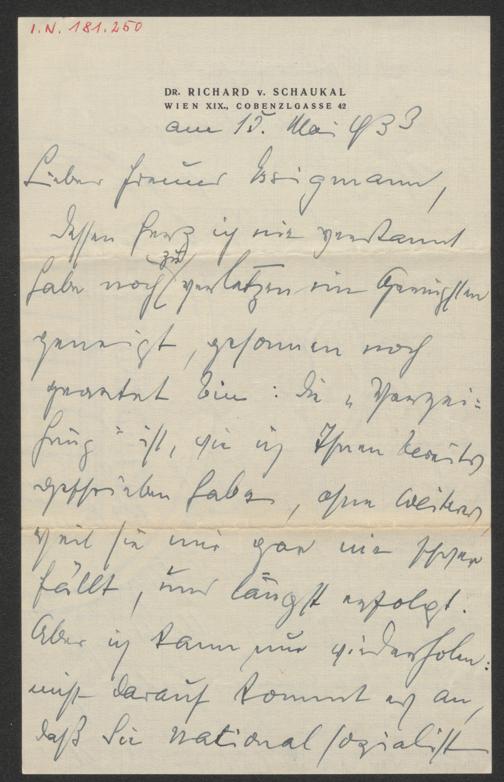 I.N. 181.250
DR. RICHARD v. SCHAUKAL
WIEN XIX., COBENZLGASSE 42
am 15. Mai 933
Lieber Freund Brigmann,
dessen Herz ich nie verkannt
habe noch zu verletzen im Geringsten
geneigt, gesonnen noch
geartet bin: die „Verzei-
hung" ist, wie ich Ihnen bereits
geschrieben habe, ohne Weiteres,
weil sie mir gar nie schwer
fällt, und längst erfolgt.
Aber ich kann nur wiederholen:
nicht darauf kommt es an,
daß Sie Nationalsozialist